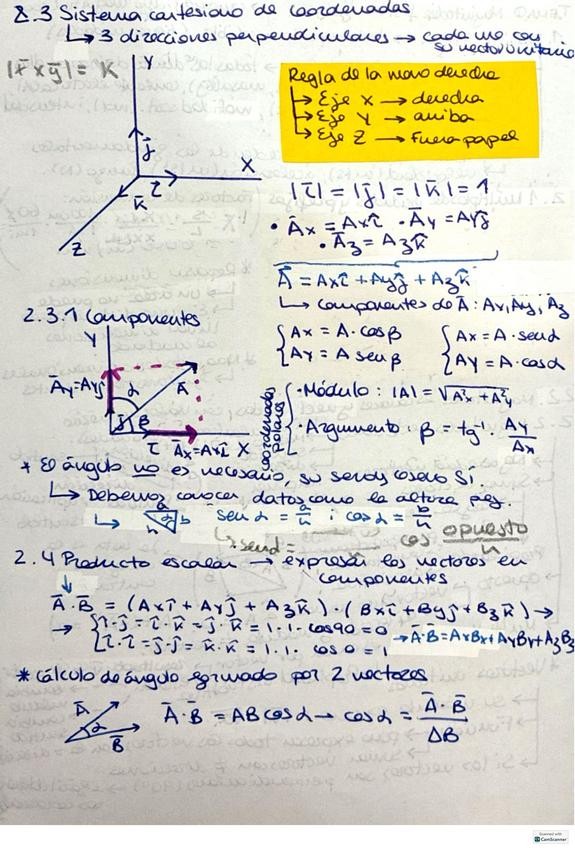 2.3 Sistema cartesiano de coordenadas
↳ 3 direcciones perpendiculares → cada uno con su vector unitario
|x̄ × ȳ| = K
Y
j̄
ī
X
k̄
Z
Regla de la mano derecha
→ Eje X → derecha
→ Eje Y → arriba
→ Eje Z → Fuera papel
|ī| = |j̄| = |k̄| = 1
• Āx = Axī • Āy = Ayj̄
• Āz = Azk̄
Ā = Axī + Ayj̄ + Azk̄
↳ componentes de Ā: Ax, Ay, Az
2.3.1 Componentes
Y
Āy = Ayj̄
α
Ā
j̄
β
ī
Āx = Axī
X
{ Ax = A · cos β
Ay = A sen β
{ Ax = A · sen α
Ay = A · cos α
coordenadas polares
• Módulo: |A| = √A²x + A²y
• Argumento: β = tg⁻¹ · Ay/Ax
* El ángulo no es necesario, su seno y coseno sí.
↳ Debemos conocer datos como la altura p.ej.
↳ a α b h sen α = a/h ; cos α = b/h
↳ sen α = cos opuesto/h
2.4 Producto escalar → expresar los vectores en componentes
Ā · B̄ = (Axī + Ayj̄ + Azk̄) · (Bxī + Byj̄ + Bzk̄) →
→ { ī · j̄ = ī · k̄ = j̄ · k̄ = 1 · 1 · cos 90 = 0
ī · ī = j̄ · j̄ = k̄ · k̄ = 1 · 1 · cos 0 = 1
→ Ā · B̄ = AxBx + AyBy + AzBz
* Cálculo de ángulo formado por 2 vectores
Ā
α
B̄
Ā · B̄ = AB cos α → cos α = Ā · B̄/AB
Scanned with
CamScanner